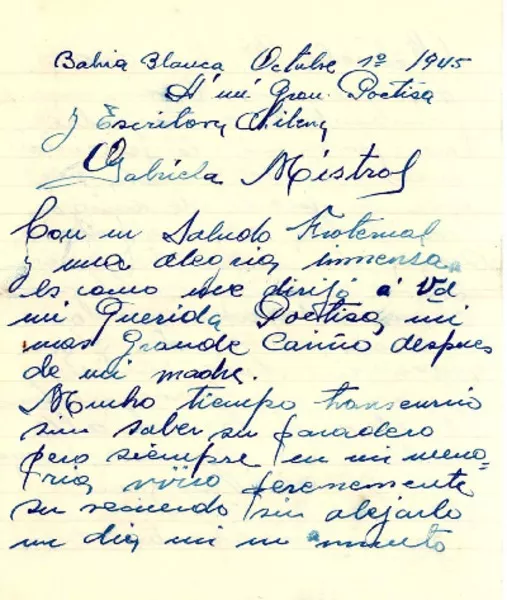 Bahia Blanca Octubre 1º 1945
A mi Gran Poetisa
y Escritora Chilena
Gabriela Mistral
Con un Saludo Fraternal
y una alegria inmensa
es como me dirijo a Vd
mi Querida Poetisa, mi
mas Grande Cariño despues
de mi madre.
Mucho tiempo transcurrio
sin saber su paradero
pero siempre en mi memo-
ria, vivio perenemente
su recuerdo sin alejarlo
un dia, ni un minuto